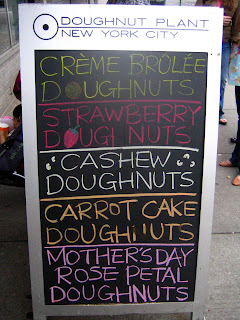 DOUGHNUT PLANT
NEW YORK CITY
CRÈME BRÛLÉE
DOUGHNUTS
STRAWBERRY
DOUGHNUTS
CASHEW
DOUGHNUTS
CARROT CAKE
DOUGHNUTS
MOTHER'S DAY
ROSE PETAL
DOUGHNUTS